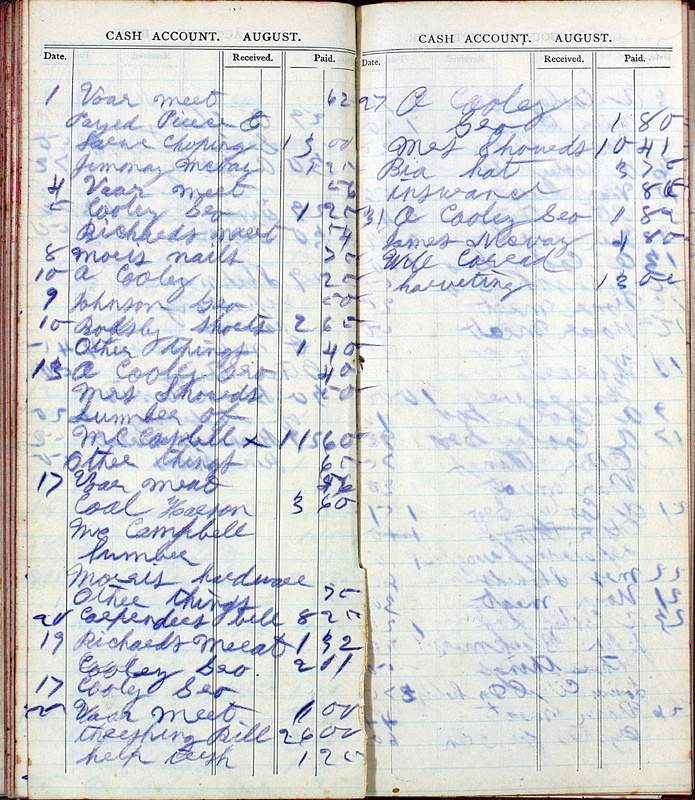 CASH ACCOUNT. AUGUST.
Date. Received. Paid.
1 Voar meet 62
Payed Pierce &
Saene Choping 13 00
Jimmay McVay 1 25
4 Voar meet 56
5 Cooley Geo 1 25
Richards meet 54
8 Moris nails 35
10 A Cooley 25
9 Johnson Geo 50
10 Rodsby Shoets 2 65
Other things 1 40
13 A Cooley Geo 40
Mrs Showeds 50
Lumber of
McCapbell x 115 60
Other things 65
17 Voar meat 56
Coal Harson 3 60
Mc Campbell
lumber
Morris hardware
Other things 35
Carpenders bill 8 25
19 Richards Meeat 1 32
Cooley Geo 2 11
17 Cooley Geo
Voar Meet 1 00
thrasping Bill 26 00
help 1 25
CASH ACCOUNT. AUGUST.
Date. Received. Paid.
27 A Cooley
Geo 1 80
Mrs Showeds 10 41
Bia hat 3 75
insurance
31 A Cooley Geo 1 82
James Mcvay 4 80
Will
harveting 13 00